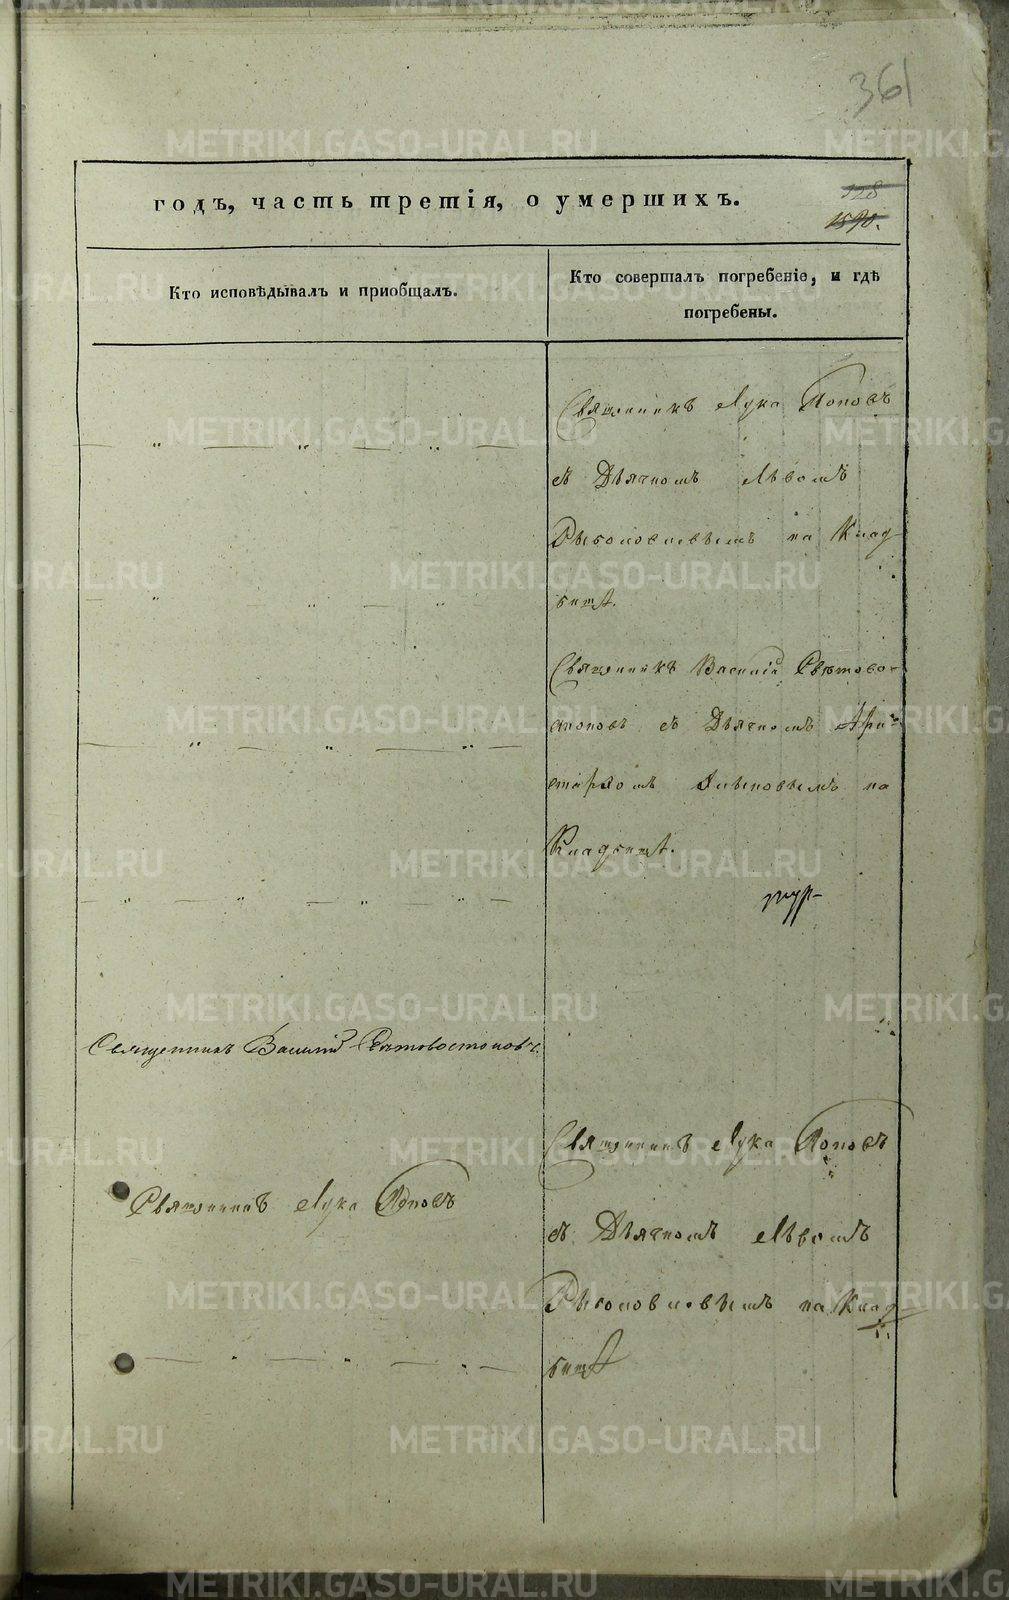 361
годъ, часть третія, о умершихъ.
128
1590.
Кто исповѣдывалъ и приобщалъ.
Кто совершалъ погребеніе, и гдѣ
погребены.
Священникъ Лука Поповъ
съ Дьячкомъ Львомъ
на Клад
бищѣ.
Священникъ Василій Свѣтово-
стоковъ съ Дьячкомъ Ари-
стархомъ на
Кладбищѣ.
Священникъ Василій Свѣтовостоковъ.
Священникъ Лука Поповъ
Священникъ Лука Поповъ
съ Дьячкомъ Львомъ
на Клад
бищѣ
METRIKI.GASO-URAL.RU